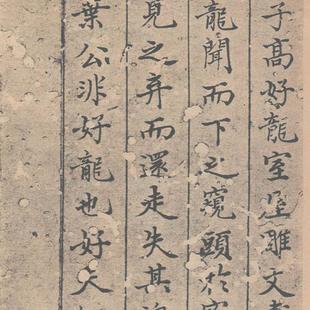 子髙好龍室屋雕文
龍聞而下之窺頭於
見之弃而還走失其
葉公非好龍也好夫